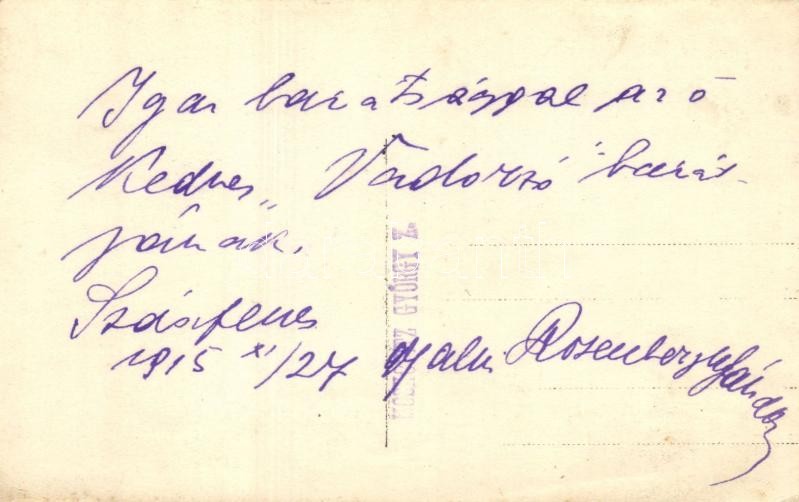 Igaz barátsággal az ő
Kedves „Vadorzó" barát-
jának.
Szászfenes
1915 XI/27 Rosenberg Sándor
GYÖRGY Z.